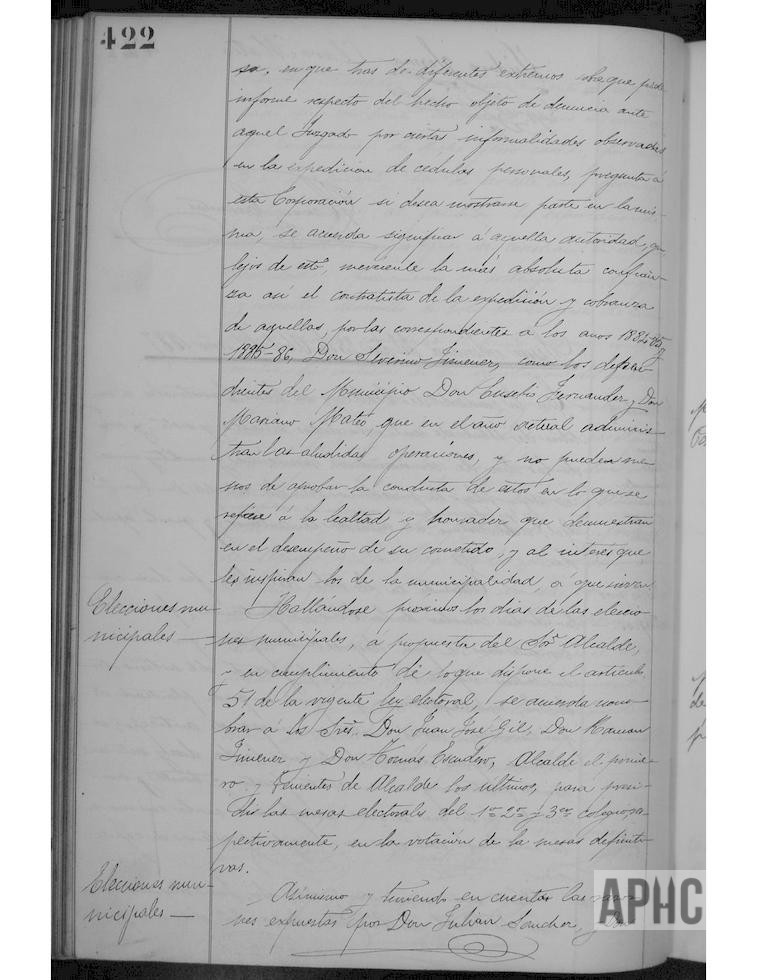 422
so, en que tras de diferentes extremos sobre que pide
informe respecto del hecho objeto de denuncia ante
aquel Juzgado por ciertas informalidades observadas
en la expedicion de cedulas personales, pregunta á
esta Corporación si desea mostrarse parte en la mis-
ma, se acuerda significar á aquella autoridad, que
lejos de esto, merecerle la más absoluta confian-
za asi el contratista de la expedición y cobranza
de aquellas, por las correspondientes á los años 1884-85 y
1885-86, Don Severino Jimenez, como los depen-
dientes del Municipio Don Eusebio Fernandez y Don
Mariano Mateo, que en el año actual adminis-
tran las aludidas operaciones, y no pueden me-
nos de aprobar la conducta de estos en lo que se
refiere á la lealtad y honradez que demuestran
en el desempeño de su cometido, y al interés que
les inspiran los de la municipalidad, á que
Elecciones mu-
nicipales
Hallándose próximos los dias de las eleccio-
nes municipales, á propuesta del Sor. Alcalde,
y en cumplimiento de lo que dispone el articulo
51 de la vigente ley electoral, se acuerda nom-
brar á los Sres. Don Juan José Gil, Don Ramon
Jimenez y Don Tomás Escudero, Alcalde el prime-
ro y Tenientes de Alcalde los últimos, para presi-
dir las mesas electorales del 1er 2º y 3er colegio, res-
pectivamente, en la votación de la mesas definiti-
vas.
Elecciones mu-
nicipales
Asimismo y teniendo en cuenta las razo-
nes expuestas por Don Julian Sanchez, y Don
APHC